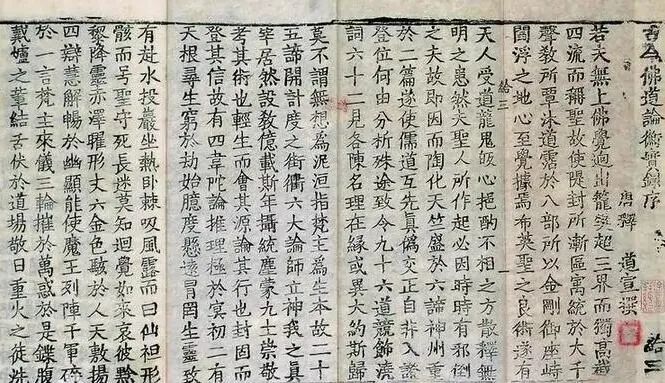 古今佛道論衡實錄序
唐釋 道宣撰
若夫無上佛覺迥出籠樊超三界而獨高截
四流而稱聖故使隄封所漸區寓統於大千
聲教所覃沐道霑於八部所以金剛御座峙
閻浮之地心至覺據焉布英聖之良術遂有
天人受道龍鬼皈心挹酌不相之方散釋無
明之患然夫聖人所作起必因時時有邪倒
之夫故即因而陶化天竺盛於六諦神州重
於二篇遂使儒道互先真偽交正自非入證
登位何由分析殊途致令九十六道競飾澆
詞六十二見各陳名理在緣或異大約斯歸
莫不謂無想為泥洹指梵主為生本故二十
五諦開計度之街衢六大論師立神我之真
宰居然設教億載斯年攝統塵蒙九土崇敬
考其術也輕生而會其源論其行也封因而
登其信故有四韋陀論推理極於冥初二有
天根尋生窮於劫始臆度懸遠冒罔生靈致
有赴水投巖坐熱臥棘吸風露而曰仙袒形
骸而号聖守死長迷莫知迴覺如來哀彼黔
黎降靈赤澤曜形丈六金色駭於人天敷揚
四辯慧解暢於幽顯能使魔王列陣千軍碎
於一言梵主來儀三輪摧於萬惑於是鍱腹
戴爐之輩結舌伏於道場敬日重火之徒洗